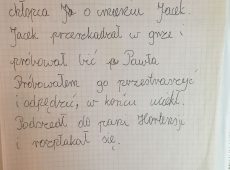 chłopca o imieniu Jacek.
Jacek przeszkadzał w grze i
próbował bić p Pawła
Próbowałem go przestraszyć
i odpędzić, w końcu uciekł.
Podszedł do pani Hortensji
i rozpłakał się.